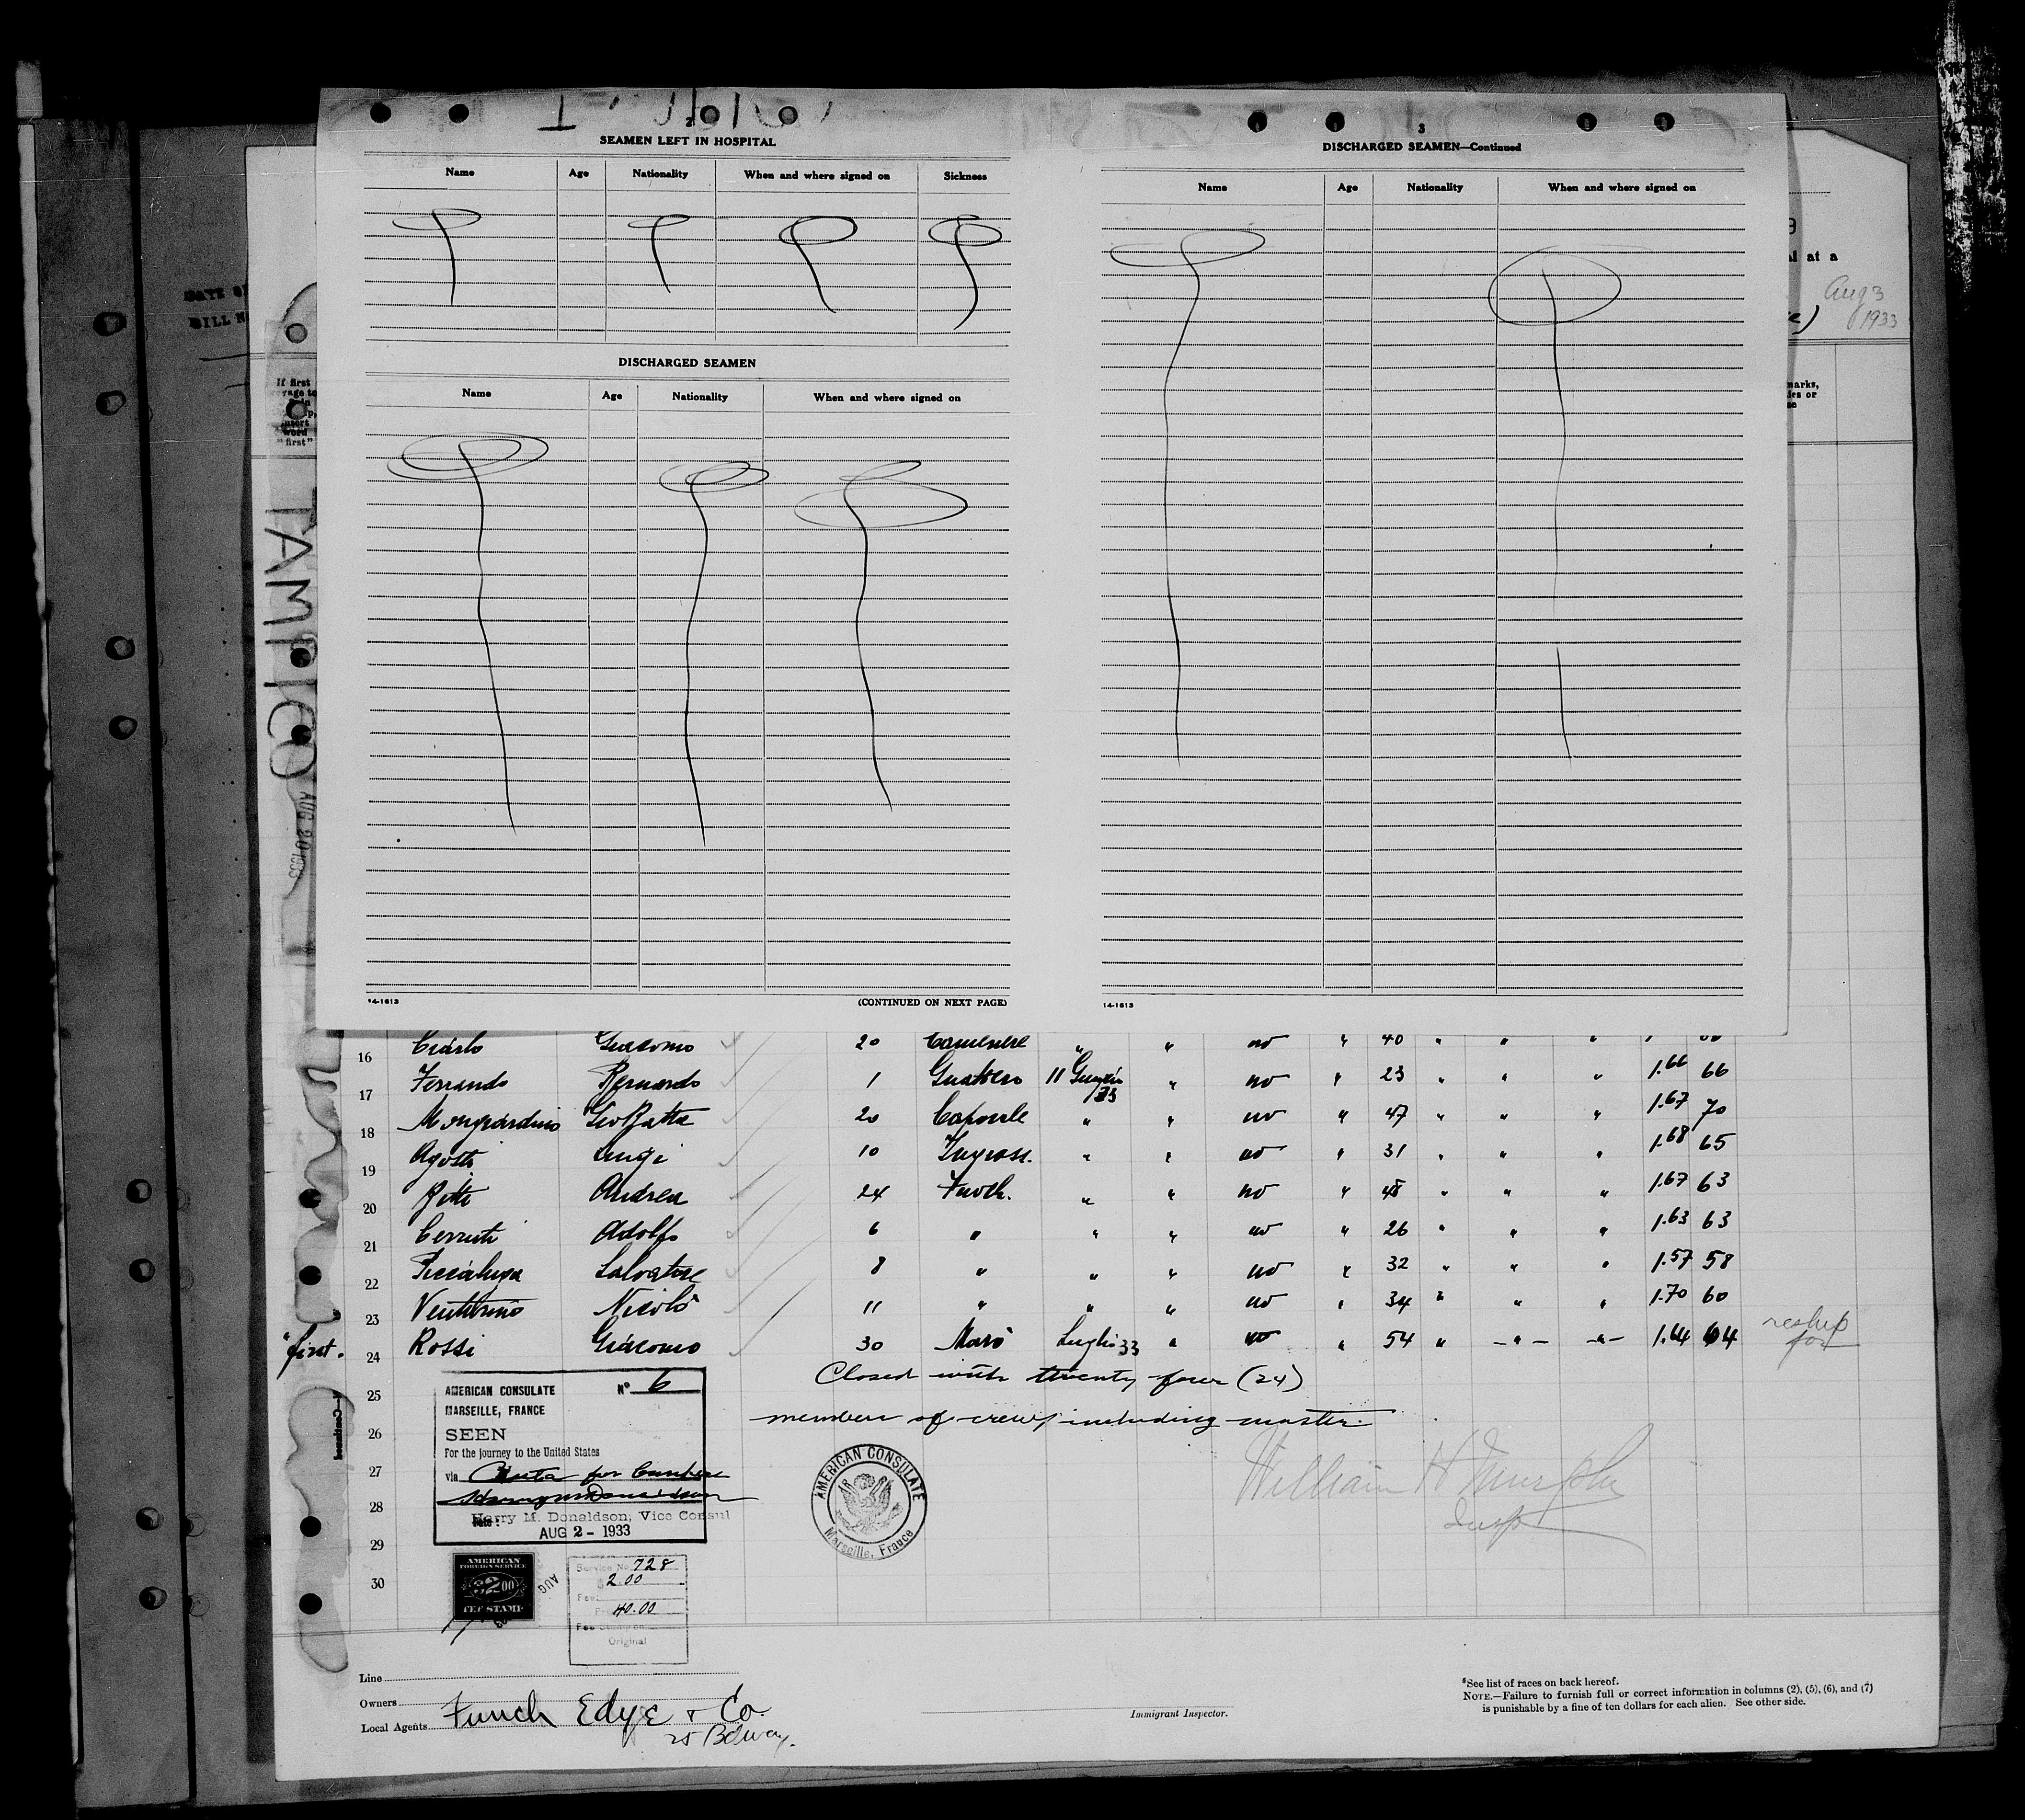 2
SEAMEN LEFT IN HOSPITAL
Name Age Nationality When and where signed on Sickness
DISCHARGED SEAMEN
Name Age Nationality When and where signed on
14-1613 (CONTINUED ON NEXT PAGE)
3
DISCHARGED SEAMEN—Continued
Name Age Nationality When and where signed on
14-1613
al at a
Aug 3
1933
marks,
If first
"first"
TAMPICO
AUG 20 1933
16 Giacomo 20 no " 40 " " "
17 Ferrando Bernardo 1 11 33 " no " 23 " " " 1.66 66
18 Mongiardino Gio Batta 20 " " no " 47 " " " 1.67 70
19 Agosti Luigi 10 Ingrass. " " no " 31 " " " 1.68 65
20 Andrea 24 Fuoch. " " no " 48 " " " 1.67 63
21 Cerruti Adolfo 6 " " " no " 26 " " " 1.63 63
22 Piccaluga Salvatore 8 " " " no " 32 " " " 1.57 58
23 Nicolò 11 " " " no " 34 " " " 1.70 60
"first. 24 Rossi Giacomo 30 Luglio 33 " no " 54 " -"- -"- 1.64 64 reship for
25 Closed with twenty four (24)
26 members of crew, including master.
27
28
29
30
AMERICAN CONSULATE Nº 6
MARSEILLE, FRANCE
SEEN
For the journey to the United States
via Ceuta for
Harry M. Donaldson, Vice Consul
AUG 2 - 1933
AMERICAN CONSULATE
Marseille, France
William H Murphy
Insp
AMERICAN
FOREIGN SERVICE
$2.00
FEE STAMP
AUG
Service No. 728
2.00
40.00
Original
Line
Owners
Local Agents Funch Edye & Co.
25 Bdway.
Immigrant Inspector.
*See list of races on back hereof.
NOTE.—Failure to furnish full or correct information in columns (2), (5), (6), and (7)
is punishable by a fine of ten dollars for each alien. See other side.